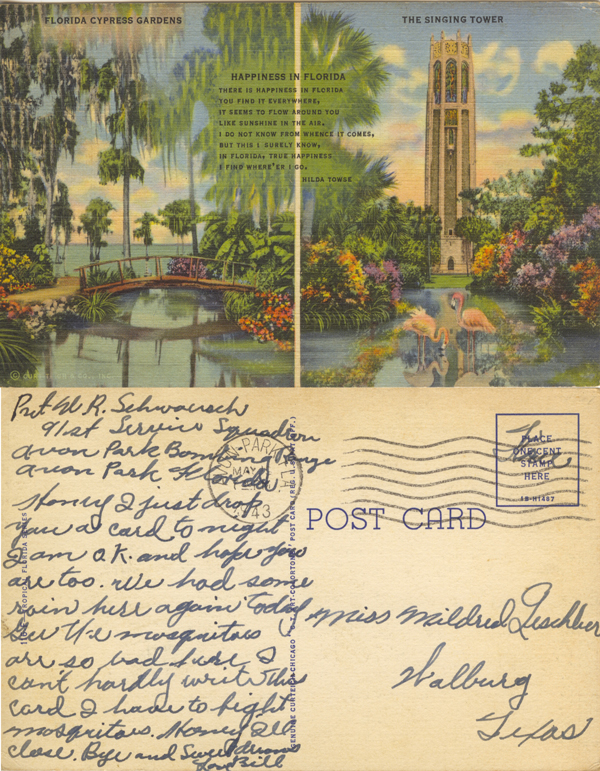 FLORIDA CYPRESS GARDENS
THE SINGING TOWER
HAPPINESS IN FLORIDA
THERE IS HAPPINESS IN FLORIDA
YOU FIND IT EVERYWHERE,
IT SEEMS TO FLOW AROUND YOU
LIKE SUNSHINE IN THE AIR.
I DO NOT KNOW FROM WHENCE IT COMES,
BUT THIS I SURELY KNOW,
IN FLORIDA, TRUE HAPPINESS
I FIND WHERE'ER I GO.
HILDA TOWSE
Pvt W. R.
91st Service Squadron
Avon Park Bombing Range
Avon Park Florida
Honey I just drop
you a card to night
I am O.K. and hope you
are too. We had some
rain here again today
The mosquitoes
are so bad here I
cant hardly write this
card I have to fight
mosquitoes. Honey Ill
close. Bye and Sweet dreams
Love Bill
AVON PARK
MAY
1943
POST CARD
Free
PLACE
ONE CENT
STAMP
HERE
1B-H1487
Miss Mildred
Walburg
Texas
TROPICAL FLORIDA SERIES
GENUINE CURTEICH-CHICAGO
POST CARD (REG. U.S. PAT. OFF.)